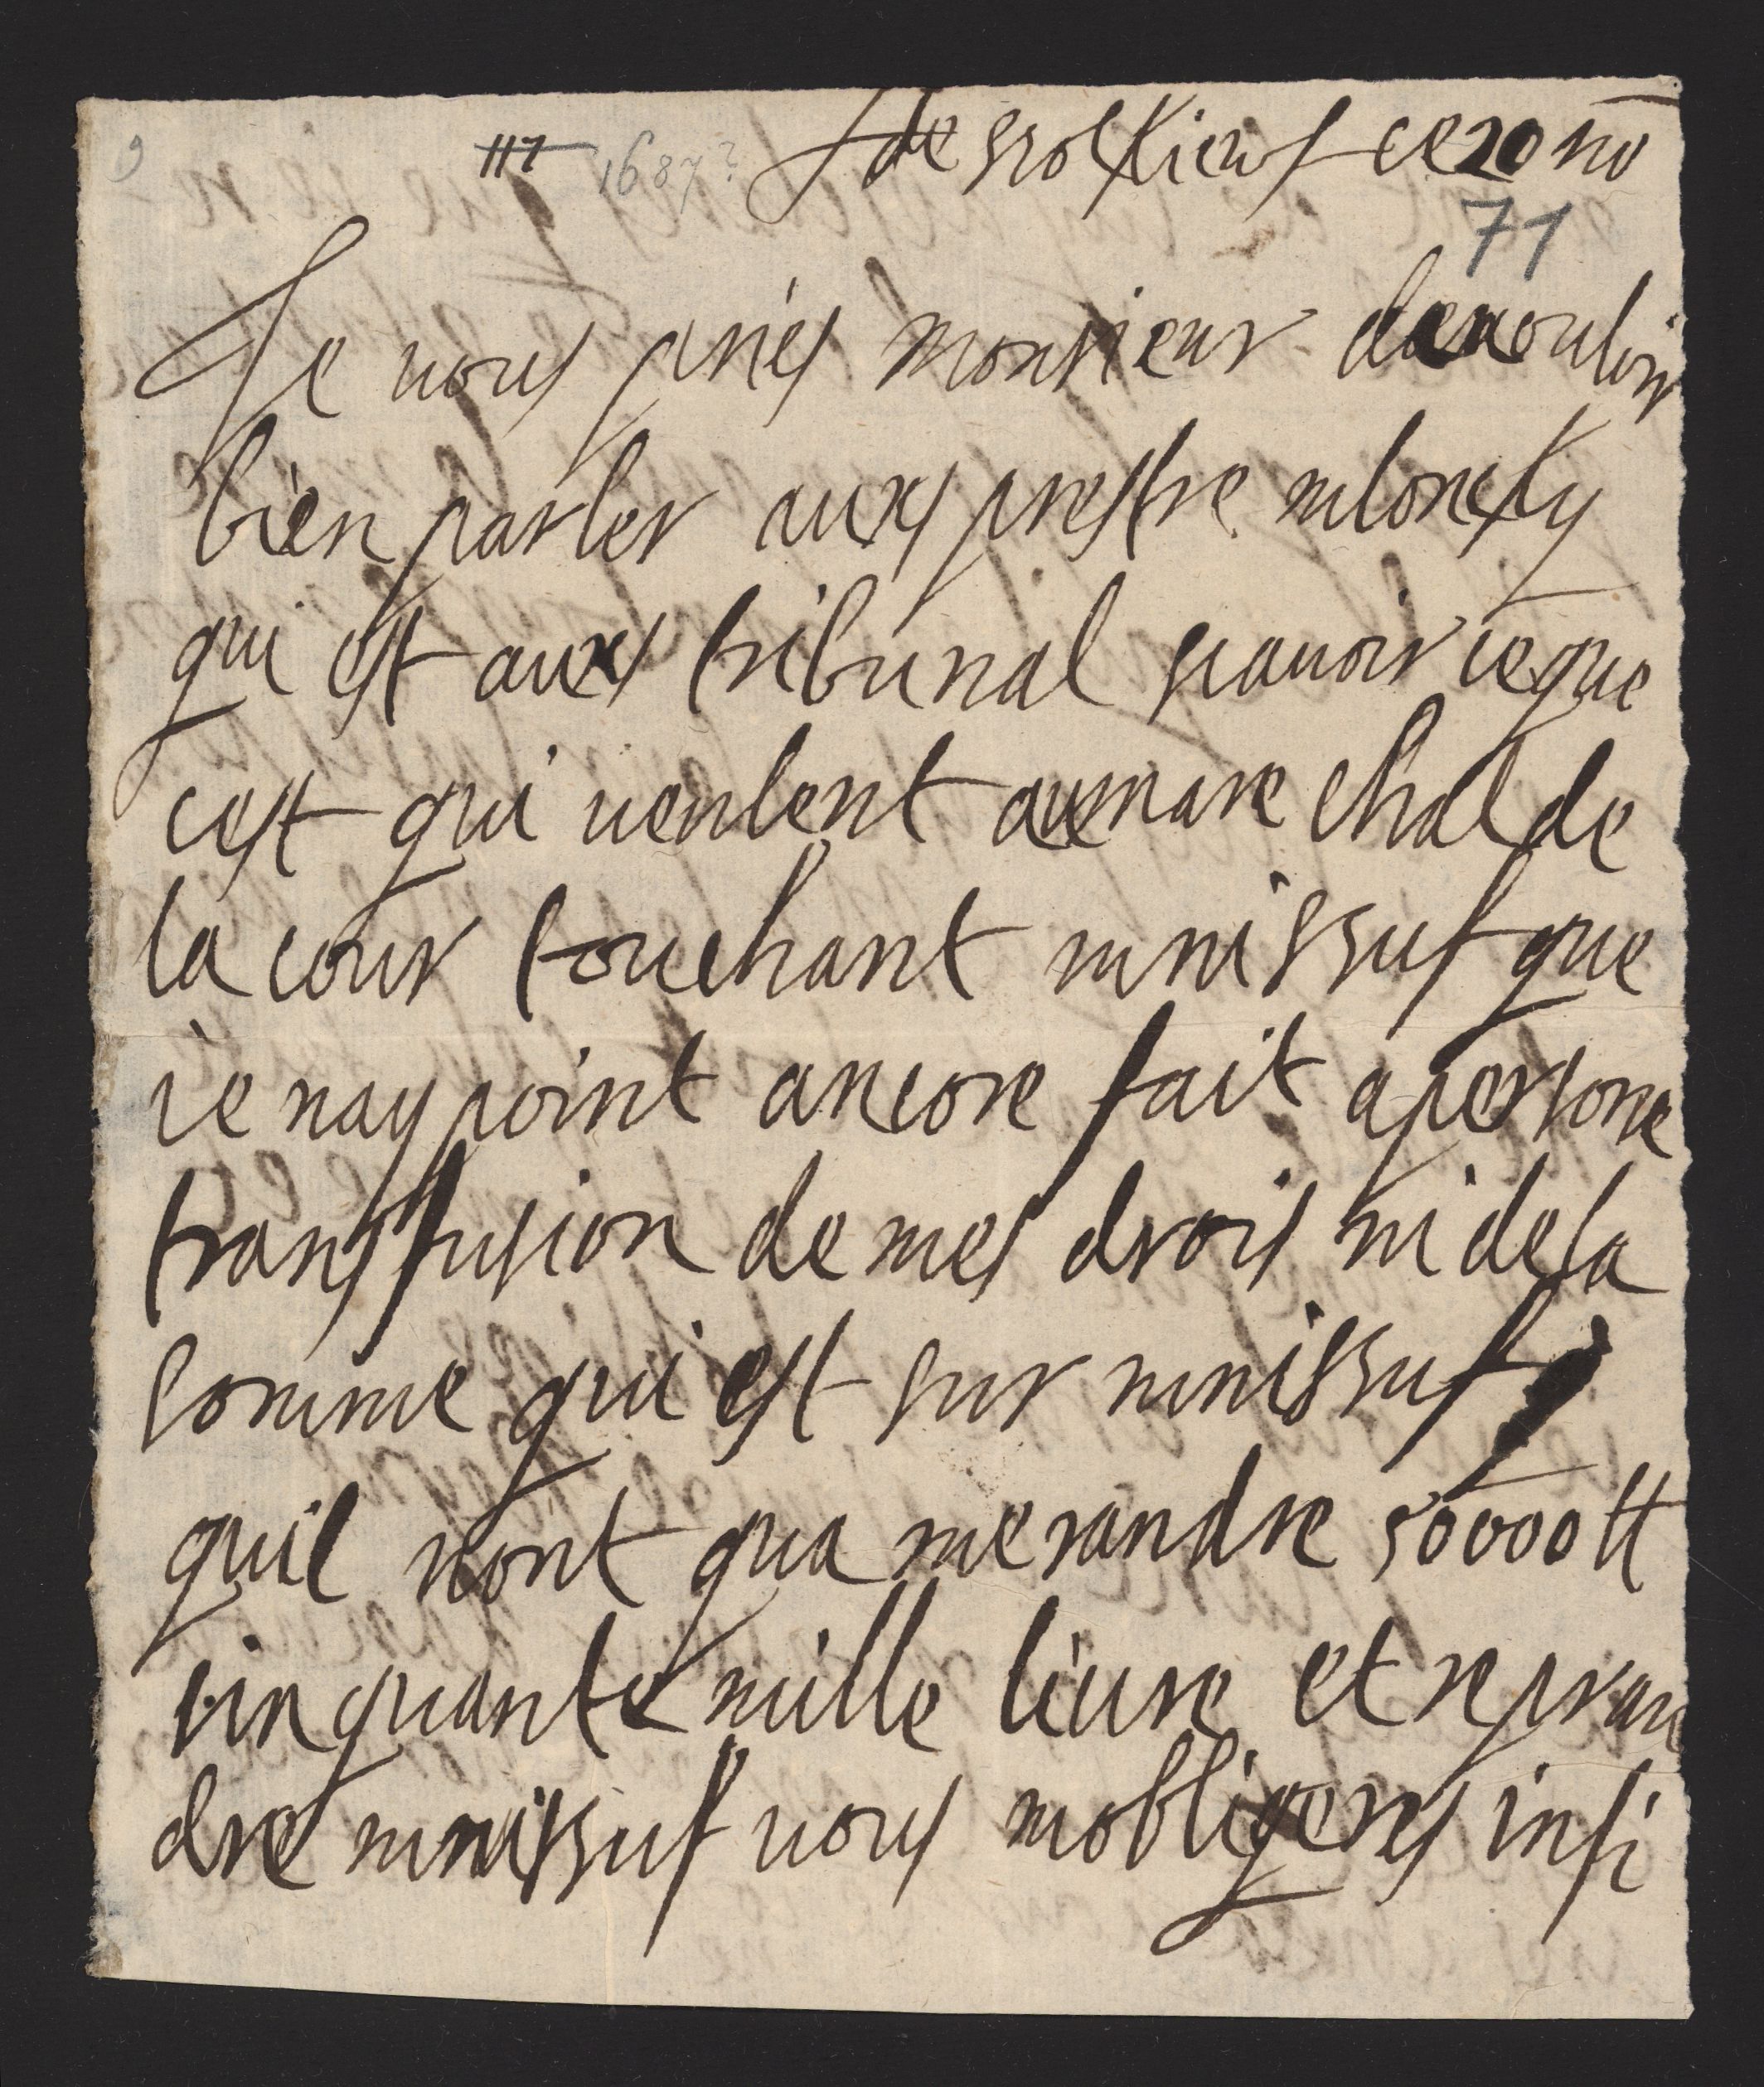 117 1687? de szolkieuf ce 20 no
71
Je uous priés monsieur de uouloir
bien parler auxs prestre mlonsky
qui est auxs tribunal scauoir ce que
cest qui ueulent au mare chal de
la cour touchant mnissuf que
ie nay point ancore fait a persone
transfusion de mes drois ni de la
somme qui est sur mnissuf
quil nont qua me randre 50000 tt
cinquante mille liure et repran
dre mnissuf uous mobligeres infi